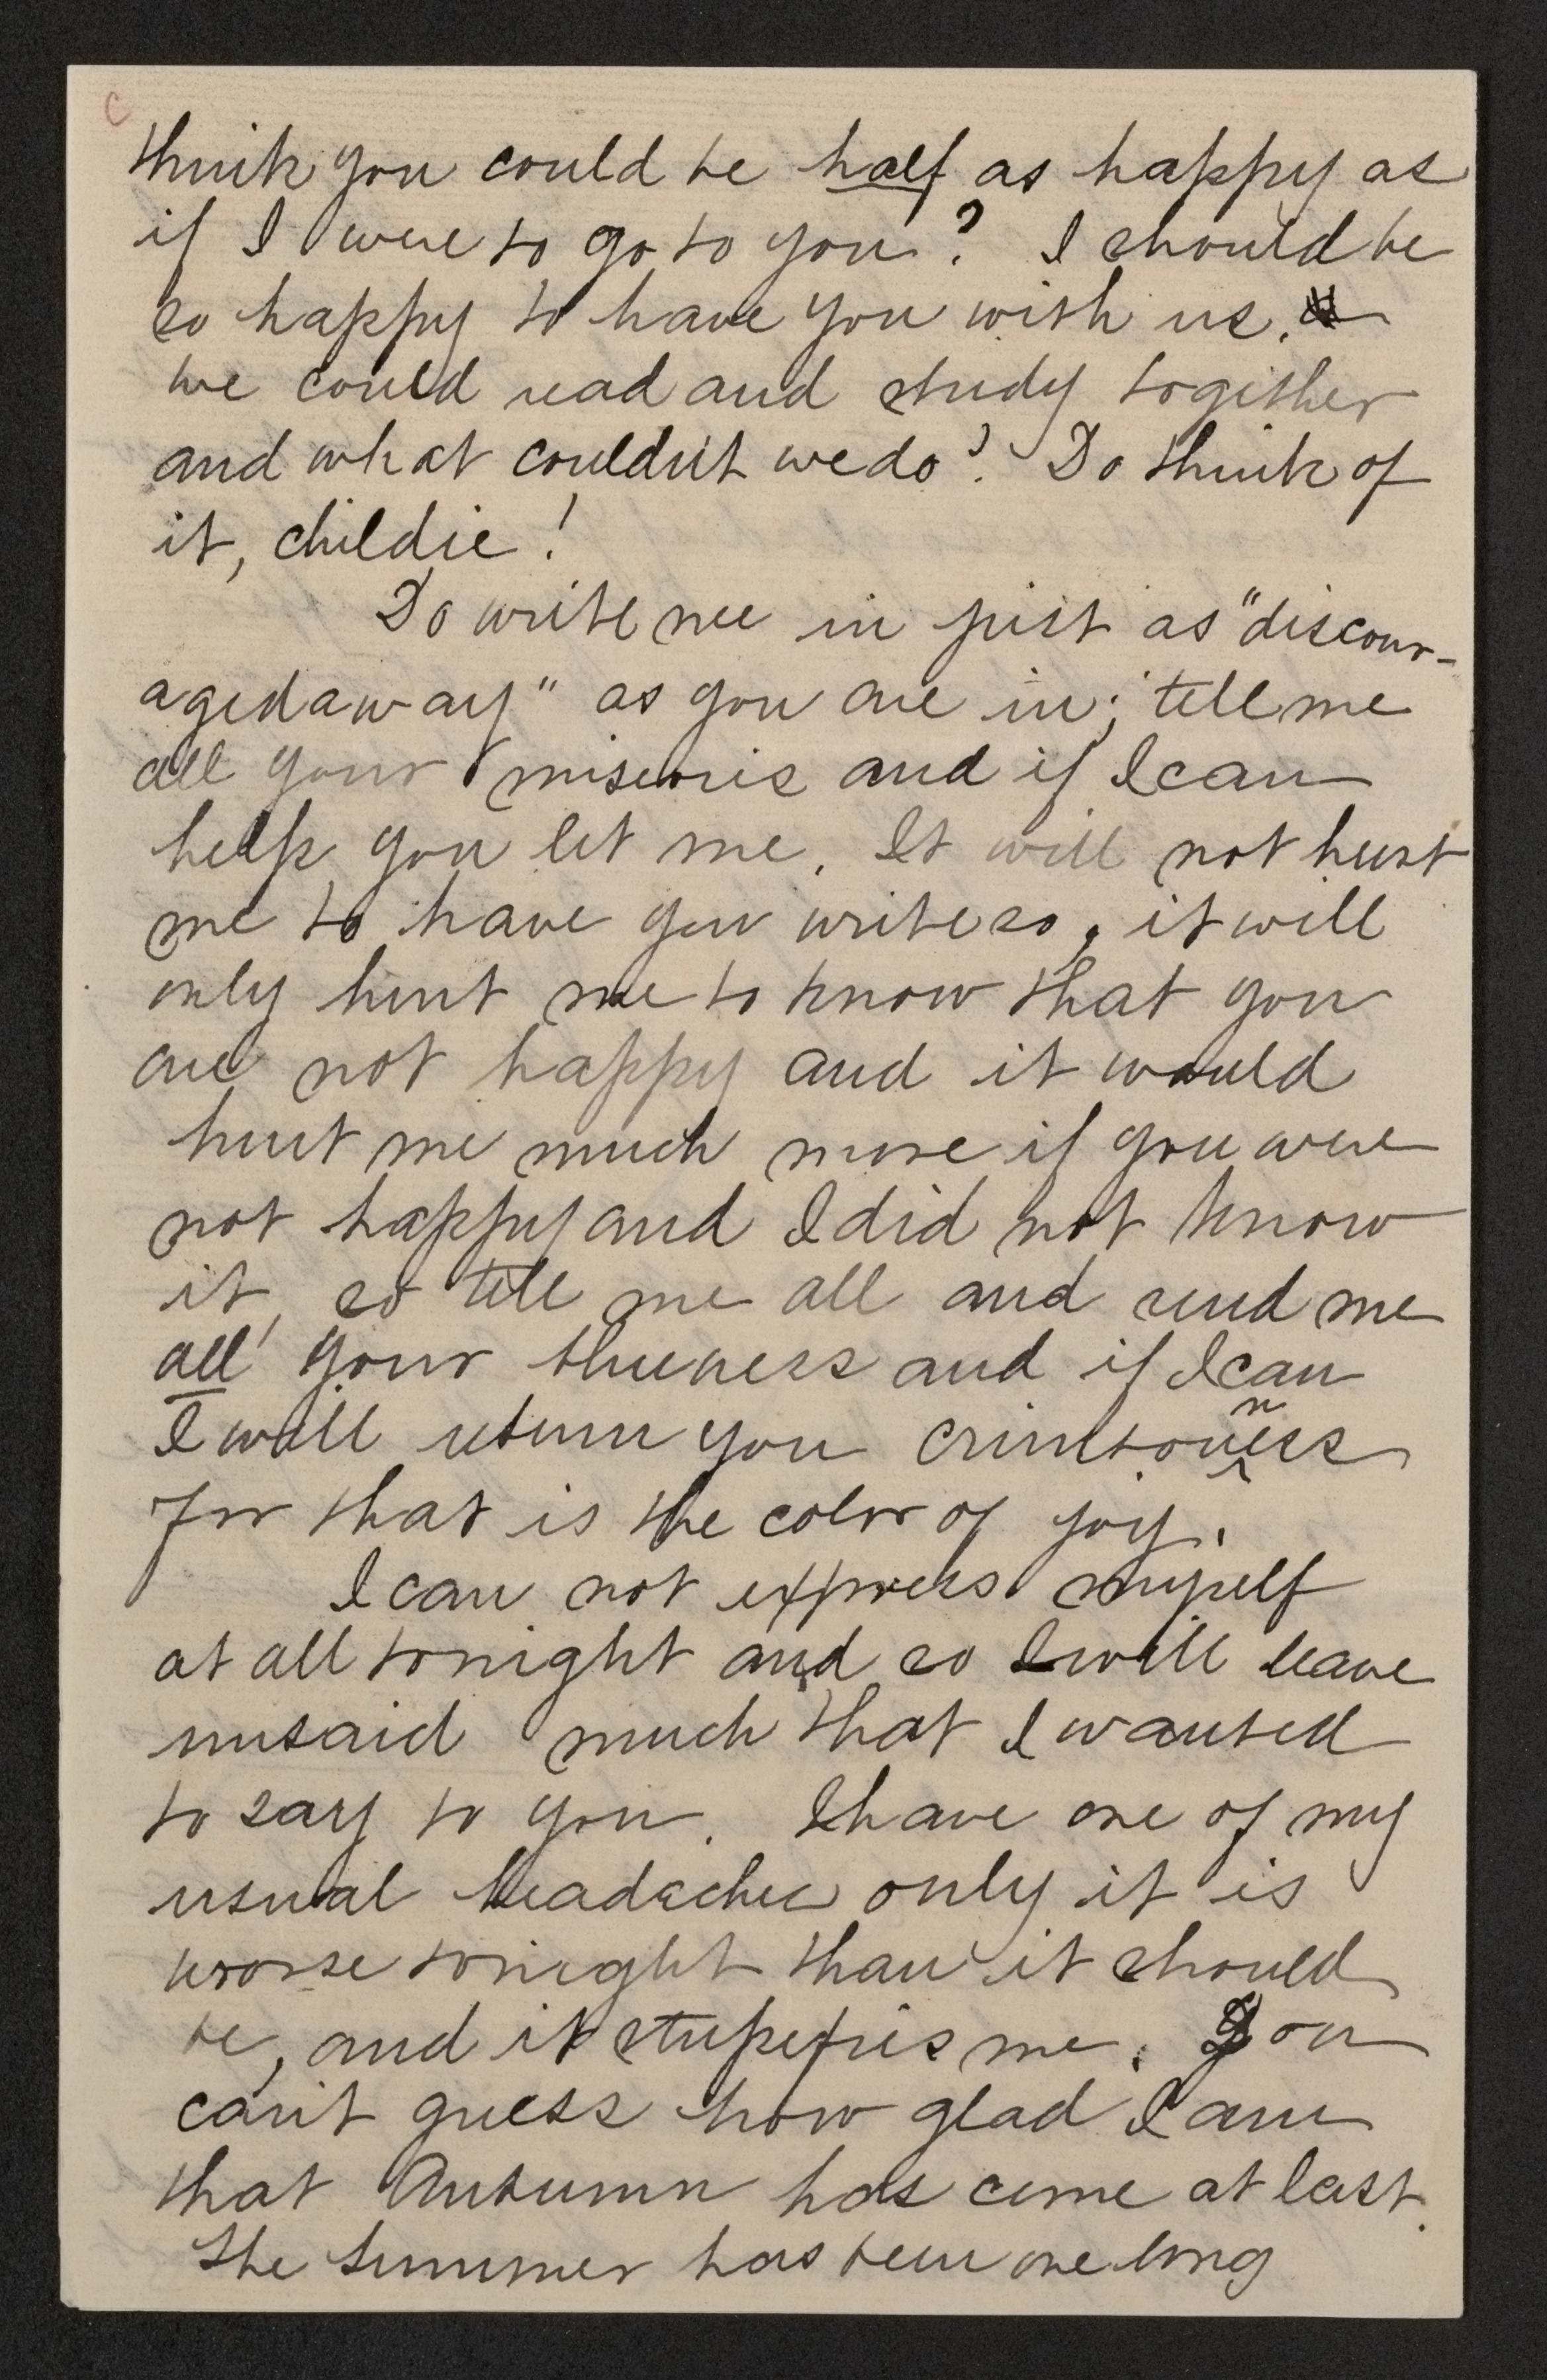 C
think you could be half as happy as
if I were to go to you? I should be
so happy to have you with us.
we could read and study together
and what couldn't we do? Do think of
it, childie!
Do write me in just as "discour-
aged a way" as you are in; tell me
all your miseries and if I can
help you let me. It will not hurt
me to have you write so, it will
only hurt me to know that you
are not happy and it would
hurt me much more if you were
not happy and I did not know
it, so tell me all and send me
all your blueness and if I can
I will return you crimsonness
for that is the color of joy.
I can not express myself
at all tonight and so I will leave
unsaid much that I wanted
to say to you. I have one of my
usual headaches only it is
worse tonight than it should
be, and it stupefies me. You
can't guess how glad I am
that Autumn has come at last.
The Summer has been one long